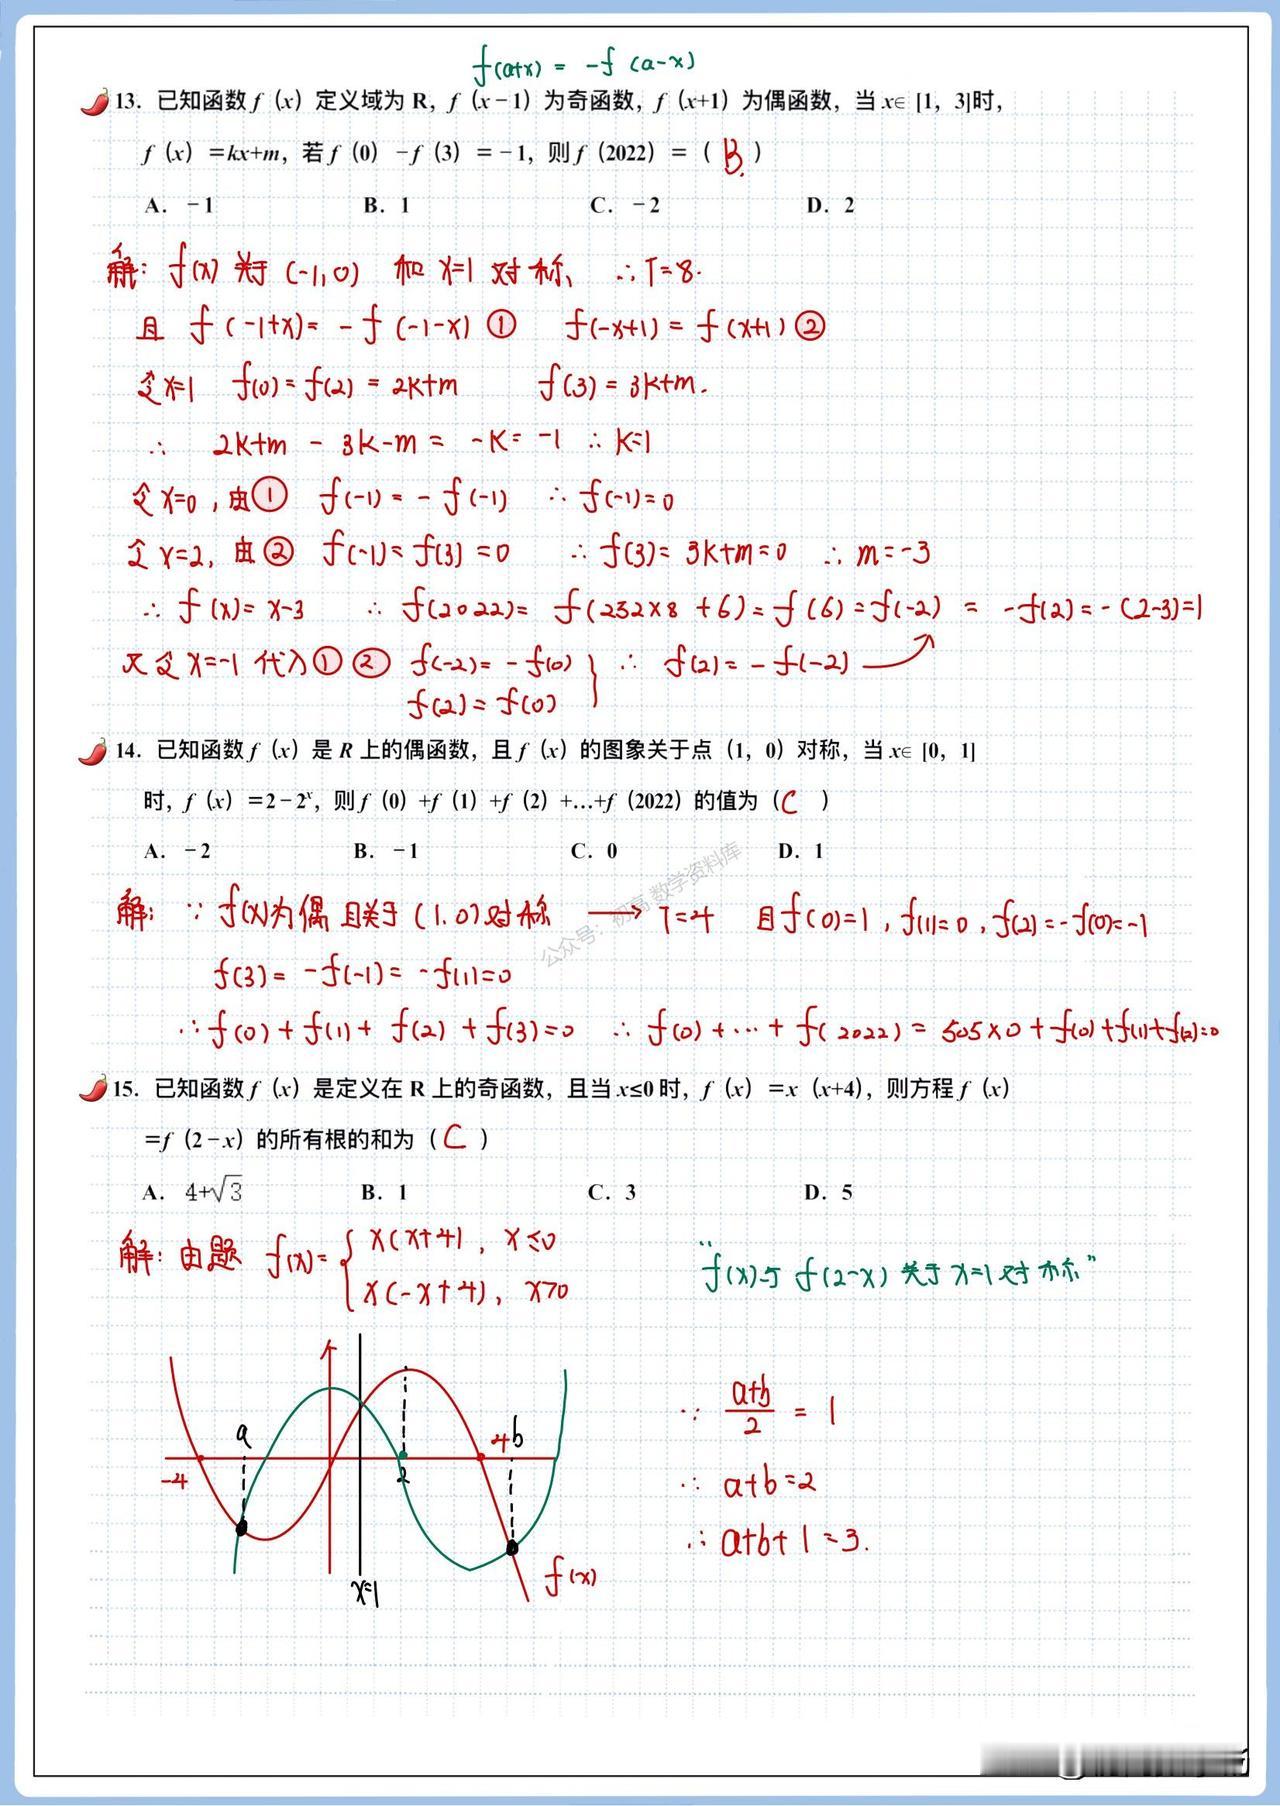 f(a+x) = -f(a-x)
13. 已知函数 f（x）定义域为 R，f（x－1）为奇函数，f（x+1）为偶函数，当 x∈ [1，3]时，
f（x）=kx+m，若 f（0）－f（3）=－1，则 f（2022）=（ B. ）
A. －1 B. 1 C. －2 D. 2
解: f(x) 关于 (-1,0) 和 x=1 对称, ∴T=8.
且 f(-1+x)= -f(-1-x) ① f(-x+1) = f(x+1) ②
令x=1 f(0)= f(2) = 2k+m f(3) = 3k+m.
∴ 2k+m - 3k-m = -k= -1 ∴k=1
令x=0, 由① f(-1) = - f(-1) ∴ f(-1)=0
令x=2, 由② f(-1)= f(3) =0 ∴ f(3)= 3k+m=0 ∴ m=-3
∴ f(x)= x-3 ∴ f(2022)= f(252×8 +6)= f(6) = f(-2) = -f(2)= - (2-3)=1
又令x=-1 代入①② f(-2)= - f(0) } ∴ f(2)= - f(-2)
f(2)= f(0)
14. 已知函数 f（x）是 R 上的偶函数，且 f（x）的图象关于点（1，0）对称，当 x∈ [0，1]
时，f（x）=2－2ˣ，则 f（0）+f（1）+f（2）+…+f（2022）的值为（ C ）
A. －2 B. －1 C. 0 D. 1
公众号：初高数学资料库
解: ∵ f(x)为偶 且关于(1,0)对称 → T=4 且f(0)=1, f(1)=0, f(2)=-f(0)=-1
f(3)= -f(-1)= -f(1)=0
∴f(0)+ f(1)+ f(2) + f(3)=0 ∴ f(0)+…+ f(2022) = 505×0+f(0)+f(1)+f(2)=0
15. 已知函数 f（x）是定义在 R 上的奇函数，且当 x≤0 时，f（x）=x（x+4），则方程 f（x）
=f（2－x）的所有根的和为（ C ）
A. 4+√3 B. 1 C. 3 D. 5
解: 由题 f(x)= { x(x+4), x≤0
x(-x+4), x>0
"f(x)与 f(2-x) 关于 x=1 对称"
a
4
b
-4
2
x=1
f(x)
∵ (a+b)/2 = 1
∴ a+b=2
∴ a+b+1=3.